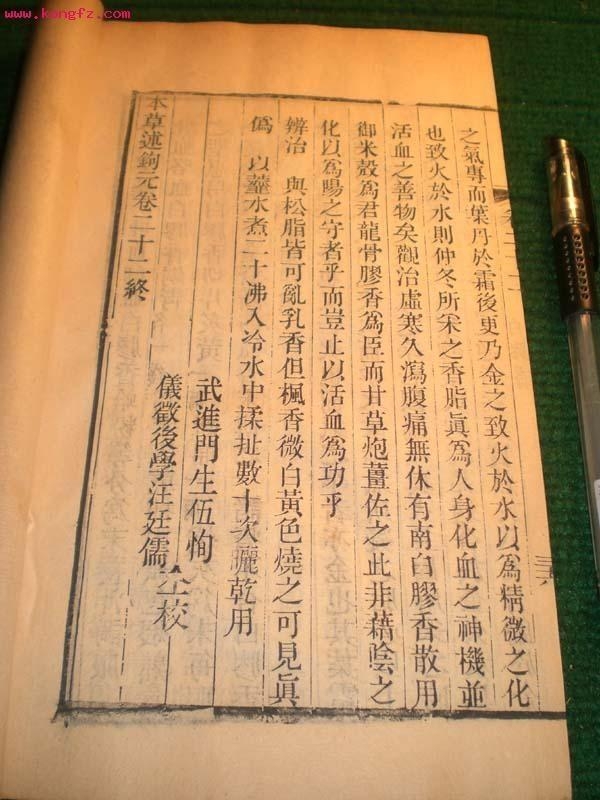 www.kongfz.com
之氣專而葉丹於霜後更乃金之致火於水以為精微之化
也致火於水則仲冬所采之香脂眞為人身化血之神機並
活血之善物矣觀治虛寒久瀉腹痛無休有南白膠香散用
御米殼為君龍骨膠香為臣而甘草炮薑佐之此非藉陰之
化以為陽之守者乎而豈止以活血為功乎
辨治 與松脂皆可亂乳香但楓香微白黃色燒之可見眞
偽 以虀水煮二十沸入冷水中揉扯數十次曬乾用
武進門生伍恂
儀徵後學汪廷儒仝校
本草述鉤元卷二十二終